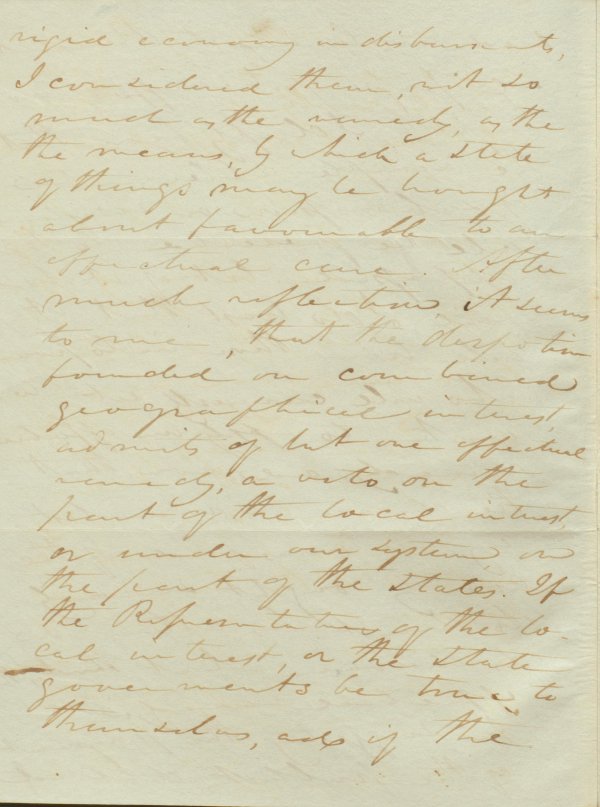 rigid economy in disbursments,
I considered them, not so
much as the remedy, as the
the means, by which a state
of things may be brought
about favourable to an
effectual cure. After
much reflection, it seems
to me, that the despotism
founded on combined
geographical interest,
admits of but one effectual
remedy, a veto on the
part of the local interest,
or under our system, on
the part of the States. If
the Representatives of the lo-
cal interest, or the State
governments be true to
themselves, and if the